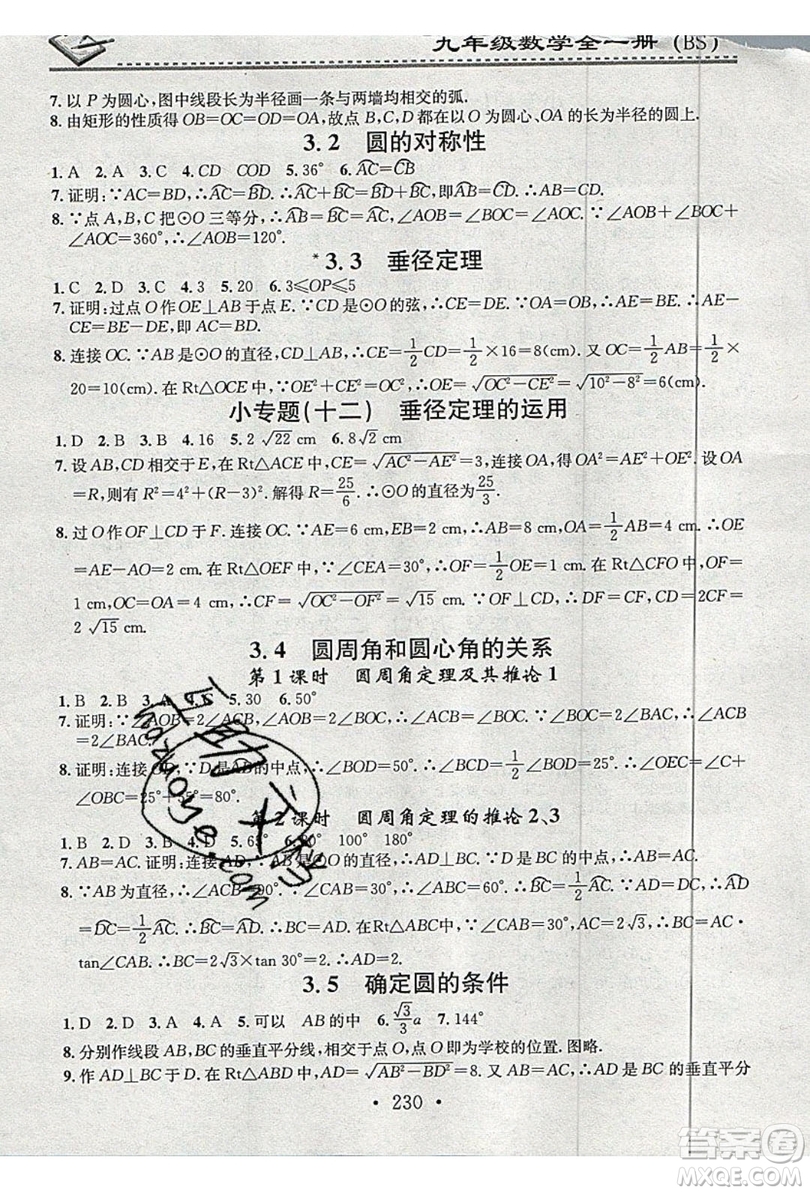 九年级数学全一册(BS)
7. 以 P 为圆心,图中线段长为半径画一条与两墙均相交的弧.
8. 由矩形的性质得 OB=OC=OD=OA,故 A、B、C、D 都在以 O 为圆心、OA 的长为半径的圆上.
3.2 圆的对称性
1. A 2. A 3. C 4. CD COD 5. 36° 6. A͡C=C͡B
7. 证明:∵AC=BD,∴A͡C=B͡D,∴A͡C-B͡C=B͡D-B͡C,即A͡B=C͡D,∴AB=CD.
8. ∵点 A,B,C 把⊙O 三等分,∴A͡B=B͡C=A͡C,∴∠AOB=∠BOC=∠AOC. ∵∠AOB+∠BOC+
∠AOC=360°,∴∠AOB=120°.
*3.3 垂径定理
1. C 2. D 3. C 4. 3 5. 20 6. 3≤OP≤5
7. 证明:过点 O 作 OE⊥AB 于点 E. ∵CD 是⊙O 的弦,∴CE=DE. ∵OA=OB,∴AE=BE,∴AE-
CE=BE-DE,即 AC=BD.
8. 连接 OC. ∵AB 是⊙O 的直径,CD⊥AB,∴CE=1/2CD=1/2×16=8(cm). 又 OC=1/2AB=1/2×
20=10(cm). 在 Rt△OCE 中,∵OE²+CE²=OC²,∴OE=√(OC²-CE²)=√(10²-8²)=6(cm).
小专题(十二) 垂径定理的运用
1. D 2. B 3. B 4. 16 5. 2√22 cm 6. 8√2 cm
7. 设 AB,CD 相交于 E,在 Rt△ACE 中,CE=√(AC²-AE²)=3,连接 OA,得 OA²=AE²+OE². 设
OA=R,则有 R²=4²+(R-3)². 解得 R=25/6. ∴⊙O 的直径为25/3.
8. 过 O 作 OF⊥CD 于 F. 连接 OC. ∵AE=6 cm,EB=2 cm,∴AB=8 cm,OA=1/2AB=4 cm. ∴OE
=AE-AO=2 cm. 在 Rt△OEF 中,∵∠CEA=30°,∴OF=1/2OE=1 cm. 在 Rt△CFO 中,OF=
1 cm,OC=OA=4 cm,∴CF=√(OC²-OF²)=√15 cm. 又∵OF⊥CD,∴DF=CF,∴CD=2CF=
2√15 cm.
3.4 圆周角和圆心角的关系
第1课时 圆周角定理及其推论1
1. B 2. D 3. A 5. 30 6. 50°
7. 证明:∵∠AOB=2∠ACB,∠AOB=2∠BOC,∴∠ACB=∠BOC. ∵∠BOC=2∠BAC,∴∠ACB
=2∠BAC.
8. 证明:连接 OD. ∵D 是A͡B的中点,∴∠BOD=∠AOD=50°,∴∠BCD=1/2∠BOD=25°. ∴∠CEB=∠ACE+
∠OBC=25°+55°=80°.
第2课时 圆周角定理的推论2、3
1. B 2. D 3. B 4. D 5. 65° 90° 100° 180°
7. AB=AC. 证明:连接 AD,∴∠ADB=90°. ∵BD=DC,∴D 为 BC 的中点,∴AB=AC.
8. ∵AB 为直径,∴∠ACB=90°. ∵∠CAB=30°,∴∠ABC=60°,∴A͡D=1/2A͡B. ∵D 是A͡C的中点,∴A͡D
=D͡C=1/2A͡C. ∴B͡C=A͡D,∴BC=AD. 在 Rt△ABC 中,∵∠CAB=30°,AC=2√3,∴BC=AC·
tan∠CAB. ∴BC=2√3×tan 30°=2. ∴AD=2.
3.5 确定圆的条件
1. D 2. D 3. A 4. A 5. 可以 AB的中点 6. √3/3 a 7. 144°
8. 分别作线段 AB,BC 的垂直平分线,相交于点 O,点 O 即为学校的位置. 图略.
9. 作 AD⊥BC 于 D. 在 Rt△ABD 中,AD=√(AB²-BD²)=8. 又 AD 是 BC 的垂直平分
· 230 ·
答案圈
MXQE.COM